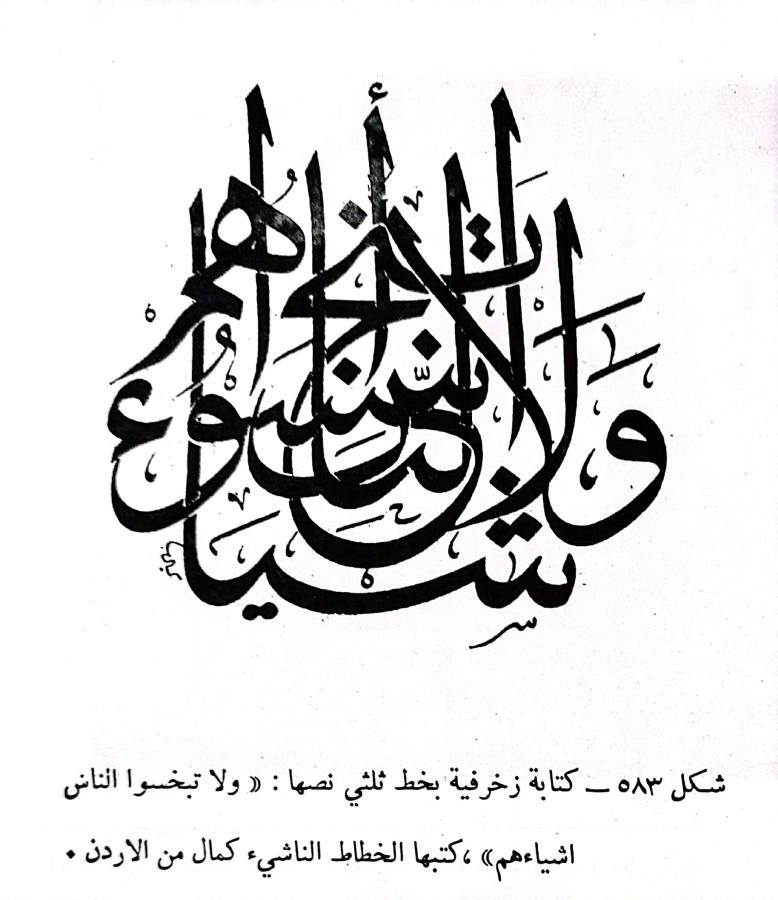 ولا تبخسوا الناس أشياءهم
شكل ٥٨٣ — كتابة زخرفية بخط ثلثي نصها : « ولا تبخسوا الناس
اشياءهم» ،كتبها الخطاط الناشيء كمال من الاردن •